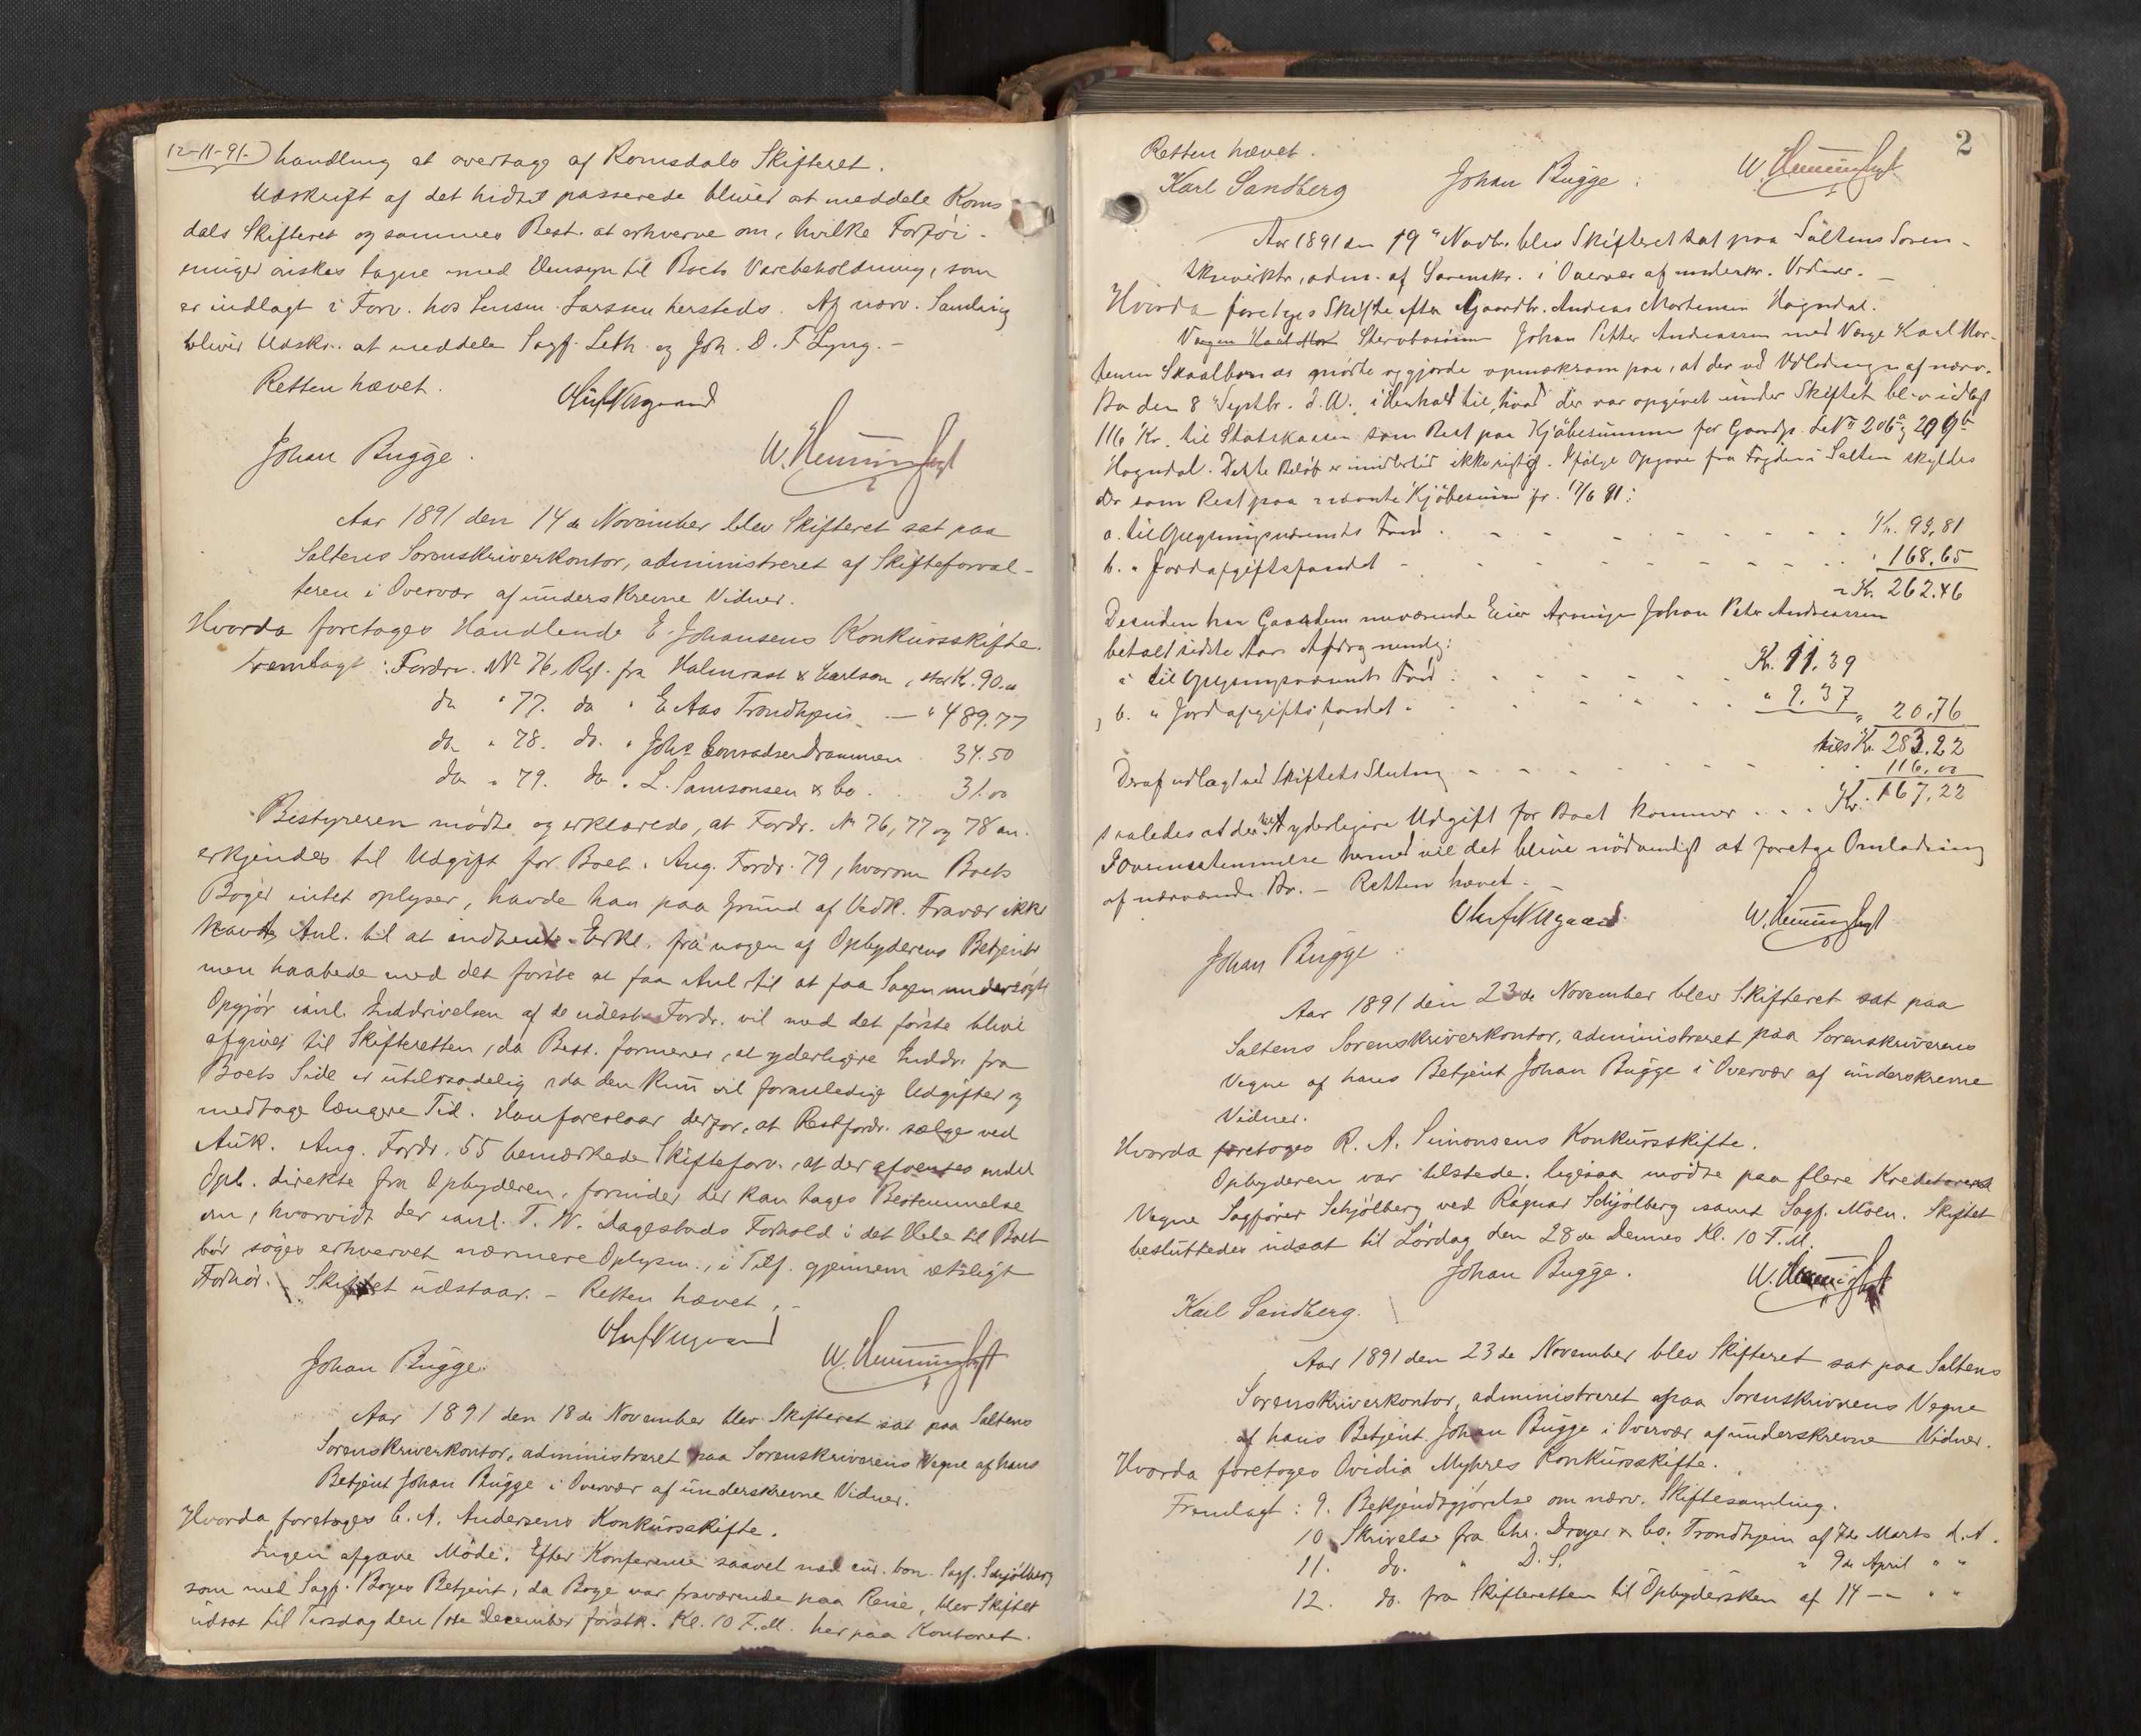 12-11-91.) handling at overtage af Romsdals Skifteret.
Udskrift af det hidtil passerede bliver at meddele Roms
dals Skifteret og sammes Best. at erhverve om, hvilke Forföi-
ninger önskes tagne med Hensyn til Boets Varebeholdning, som
er indlagt i Forv. hos Lensm. Larssen hersteds. Af nærv. Samling
bliver Udskr. at meddele Sagf. Leth og Joh. D. F. Lyng. -
Retten hævet.
Johan Bugge.
Aar 1891 den 14de November blev Skifteret sat paa
Saltens Sorenskriverkontor, administreret af Skifteforval-
teren i Overvær af underskrevne Vidner.
Hvorda foretoges Handlende E. Johansens Konkursskifte.
Fremlagt: Fordr. No 76, Rgl. fra Halmrast & Carlson, stor Kr. 90.00
do " 77. do " E Aas Trondhjem — " 489.77
do " 78. do. " Johs Conradsen Drammen . 34.50
do " 79. do " L. Samsonsen & Co. .. 31.00
Bestyreren mödte og erklærede, at Fordr. No 76, 77 og 78 an-
erkjendes til Udgift for Boet. Ang. Fordr. 79, hvorom Boets
Böger intet oplyser, havde han paa Grund af Vedk. Fravær ikke
havt Anl. til at indhente Erkl. fra nogen af Opbyderens Betjente
men haabede med det förste at faa Anl. til at faa Sagen undersögt
Opgjör Inddrivelsen af de udest. Fordr. vil med det förste blive
afgivet til Skifteretten, da Best. formener, at yderligere Inddr. fra
Boets Side er utilraadelig, da den kun vil foranledige Udgifter og
medtage længere Tid. Han foreslaar derfor, at Restfordr. sælges ved
Auk. Ang. Fordr. 55 bemærkede Skifteforv., at der afventes
Opl. direkte fra Opbyderen, forinden der kan tages Bestemmelse
om, hvorvidt der T. N. Dagestads Forhold i det Hele til Boet
bör söges erhvervet nærmere Oplysn., i Tilf. gjennem retsligt
Forhör. - Skiftet udstaar. - Retten hævet. -
Johan Bugge.
Aar 1891 den 18de November blev Skifteret sat paa Saltens
Sorenskriverkontor, administreret paa Sorenskriverens Vegne af hans
Betjent Johan Bugge i Overvær af underskrevne Vidner.
Hvorda foretoges C. A. Andersens Konkursskifte.
Ingen afgave Möde. Efter Konference saavel med cur. bon. Sagf. Schjölberg
som med Sagf. Boyes Betjent, da Boye var fraværende paa Reise, blev Skiftet
udsat til Tirsdag den 1ste December förstk. Kl. 10 F. M. her paa Kontoret.
2
Retten hævet.
Karl Sandberg Johan Bugge.
Aar 1891 den 19de Novbr. blev Skifteret sat paa Saltens Soren-
skriverktr, adm. af Sorenskr. i Overvær af underskr. Vidner. -
Hvorda foretoges Skifte efter Gaardbr. Andreas Mortensen Hogndal.
Johan Petter Andreassen med Værge Karl Mor-
tensen mödte og gjorde opmærksom paa, at der ved Udlodningen af nærv.
Bo den 8de Septbr. d. A. i Henhold til, hvad der var opgivet under Skiftet blev udlagt
116 Kr. til Statskassen som Rest paa Kjöbesummen for Gaardp. L No 206a og 209b
Hogndal. Dette Belöb er imidlertid ikke rigtigt. Ifölge Opgave fra Fogden i Salten skyldes
der som Rest paa nævnte Kjöbesum pr. 17/6 91:
a. til Oplysningsvæsenets Fond . - - - Kr. 93,81
b. " Jordafgiftsfondet - - - - " 168.65
= Kr. 262.46
Desuden har Gaardens nuværende Eier Arvingen Johan Peter Andreassen
betalt sidste Aars Afdrag nemlig:
a til Oplysningsvæsenets Fond . - - - Kr. 11,39
b. " Jordafgiftsfondet . . . . " 9.37 " 20.76
tils Kr. 283.22
Deraf udlagt ved Skiftets Slutning - - - - 116,00
saaledes at der som yderligere Udgift for Boet kommer . . . Kr. 167,22
I Overensstemmelse hermed vil det blive nödvendigt at foretage Omlodning
af nærværende Bo. - Retten hævet. -
Johan Bugge.
Aar 1891 den 23de November blev Skifteret sat paa
Saltens Sorenskriverkontor, administreret paa Sorenskriverens
Vegne af hans Betjent Johan Bugge i Overvær af underskrevne
Vidner.
Hvorda foretoges R. A. Simonsens Konkursskifte.
Opbyderen var tilstede. ligesaa mödte paa flere Kreditorers
Vegne Sagförer Schjölberg ved Ragnar Schjölberg samt Sagf. Moen. Skiftet
besluttedes udsat til Lördag den 28de Dennes Kl. 10 F. M.
Johan Bugge.
Karl Sandberg.
Aar 1891 den 23de November blev Skifteret sat paa Saltens
Sorenskriverkontor, administreret paa Sorenskriverens Vegne
af hans Betjent Johan Bugge i Overvær af underskrevne Vidner.
Hvorda foretoges Ovidia Myhres Konkursskifte.
Fremlagt: 9. Bekjendtgjörelse om nærv. Skiftesamling.
10 Skrivelse fra Chr. Dreyer & Co. Trondhjem af 7de Marts d. A.
11. do. " D. S. " 9de April " "
12. do. fra Skifteretten til Opbydersken af 14 — " "